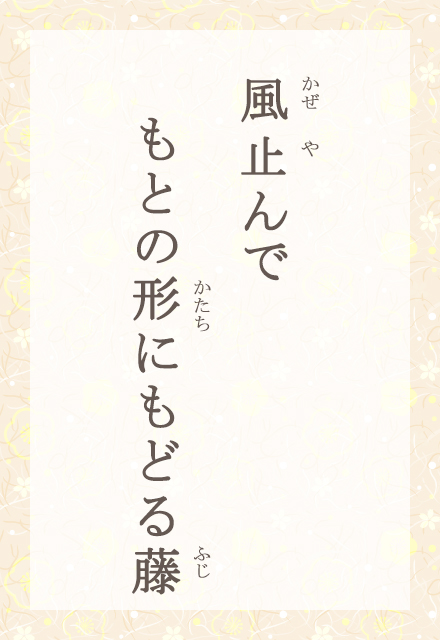 風止んで
かぜ や
もとの形にもどる藤
かたち ふじ